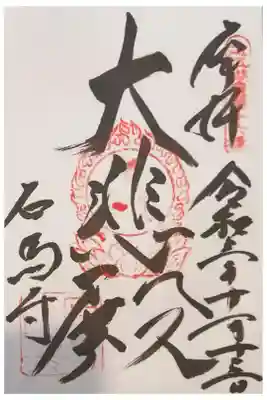 奉拝
令和六年十一月十三日
大悲殿
石馬寺